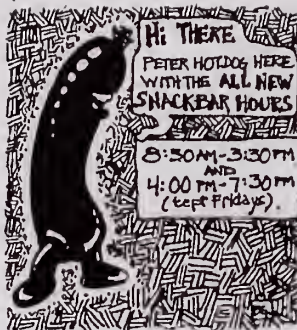 Hi THERE
PETER HOTDOG HERE
WITH THE ALL NEW
SNACKBAR HOURS
8:30AM-3:30PM
AND
4:00 PM-7:30PM
(cept Fridays).